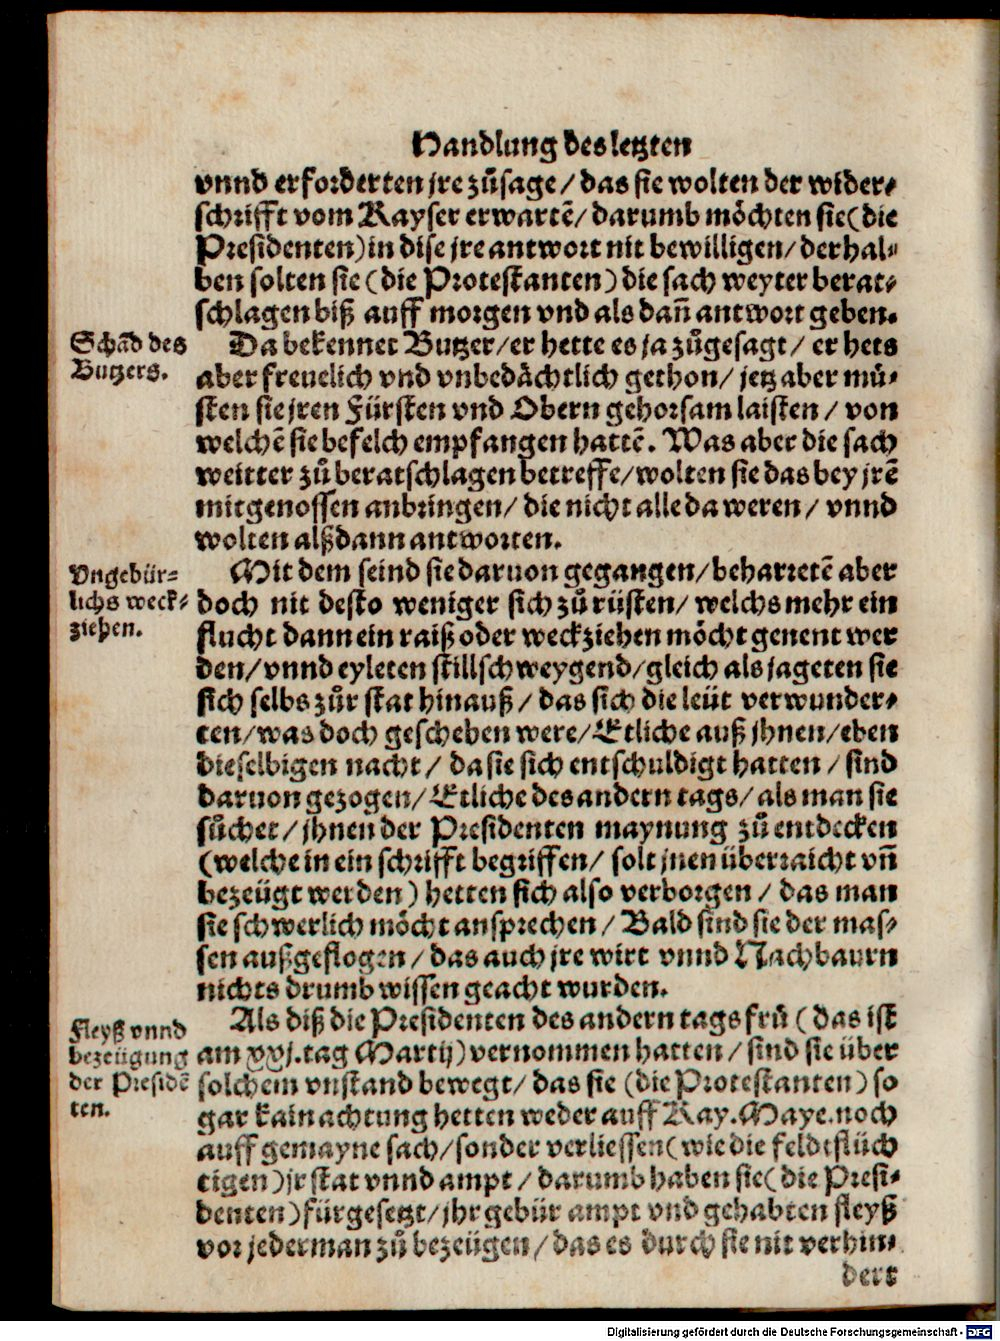 Handlung des letzten
vnnd erforderten jre zůsage / das sie wolten der wider⸗
schrifft vom Kayser erwartē / darumb möchten sie (die
Presidenten) in dise jre antwort nit bewilligen / derhal⸗
ben solten sie (die Protestanten) die sach weyter berat⸗
schlagen biß auff morgen vnd als dañ antwort geben.
Schād des
Butzers.
Da bekennet Butzer / er hette es ja zůgesagt / er hets
aber freuelich vnd vnbedächtlich gethon / jetz aber mů⸗
sten sie jren Fürsten vnd Obern gehorsam laisten / von
welchē sie befelch empfangen hattē. Was aber die sach
weitter zů beratschlagen betreffe / wolten sie das bey jrē
mitgenossen anbringen / die nicht alle da weren / vnnd
wolten alßdann antworten.
Vngebür⸗
lichs weck⸗
ziehen.
Mit dem seind sie daruon gegangen / beharretē aber
doch nit desto weniger sich zů rüsten / welchs mehr ein
flucht dann ein raiß oder weckziehen möcht genent wer
den / vnnd eyleten stillschweygend / gleich als jageten sie
sich selbs zůr stat hinauß / das sich die leüt verwunder⸗
ten / was doch geschehen were / Etliche auß jhnen / eben
dieselbigen nacht / da sie sich entschuldigt hatten / sind
daruon gezogen / Etliche des andern tags / als man sie
sůchet / jhnen der Presidenten maynung zů entdecken
(welche in ein schrifft begriffen / solt jnen überraicht vñ
bezeügt werden) hetten sich also verborgen / das man
sie schwerlich möcht ansprechen / Bald sind sie der mas⸗
sen außgeflogen / das auch jre wirt vnnd Nachbaurn
nichts drumb wissen geacht wurden.
Fleyß vnnd
bezeügung
der Presidē
ten.
Als diß die Presidenten des andern tags frů (das ist
am xxj. tag Martij) vernommen hatten / sind sie über
solchem vnstand bewegt / das sie (die Protestanten) so
gar kain achtung hetten weder auff Kay. Maye. noch
auff gemayne sach / sonder verliessen (wie die feldtflüch
tigen) jr stat vnnd ampt / darumb haben sie (die Presi⸗
denten) fürgesetzt / jhr gebür ampt vnd gehabten fleyß
vor jederman zů bezeügen / das es durch sie nit verhin⸗
dert
Digitalisierung gefördert durch die Deutsche Forschungsgemeinschaft - DFG